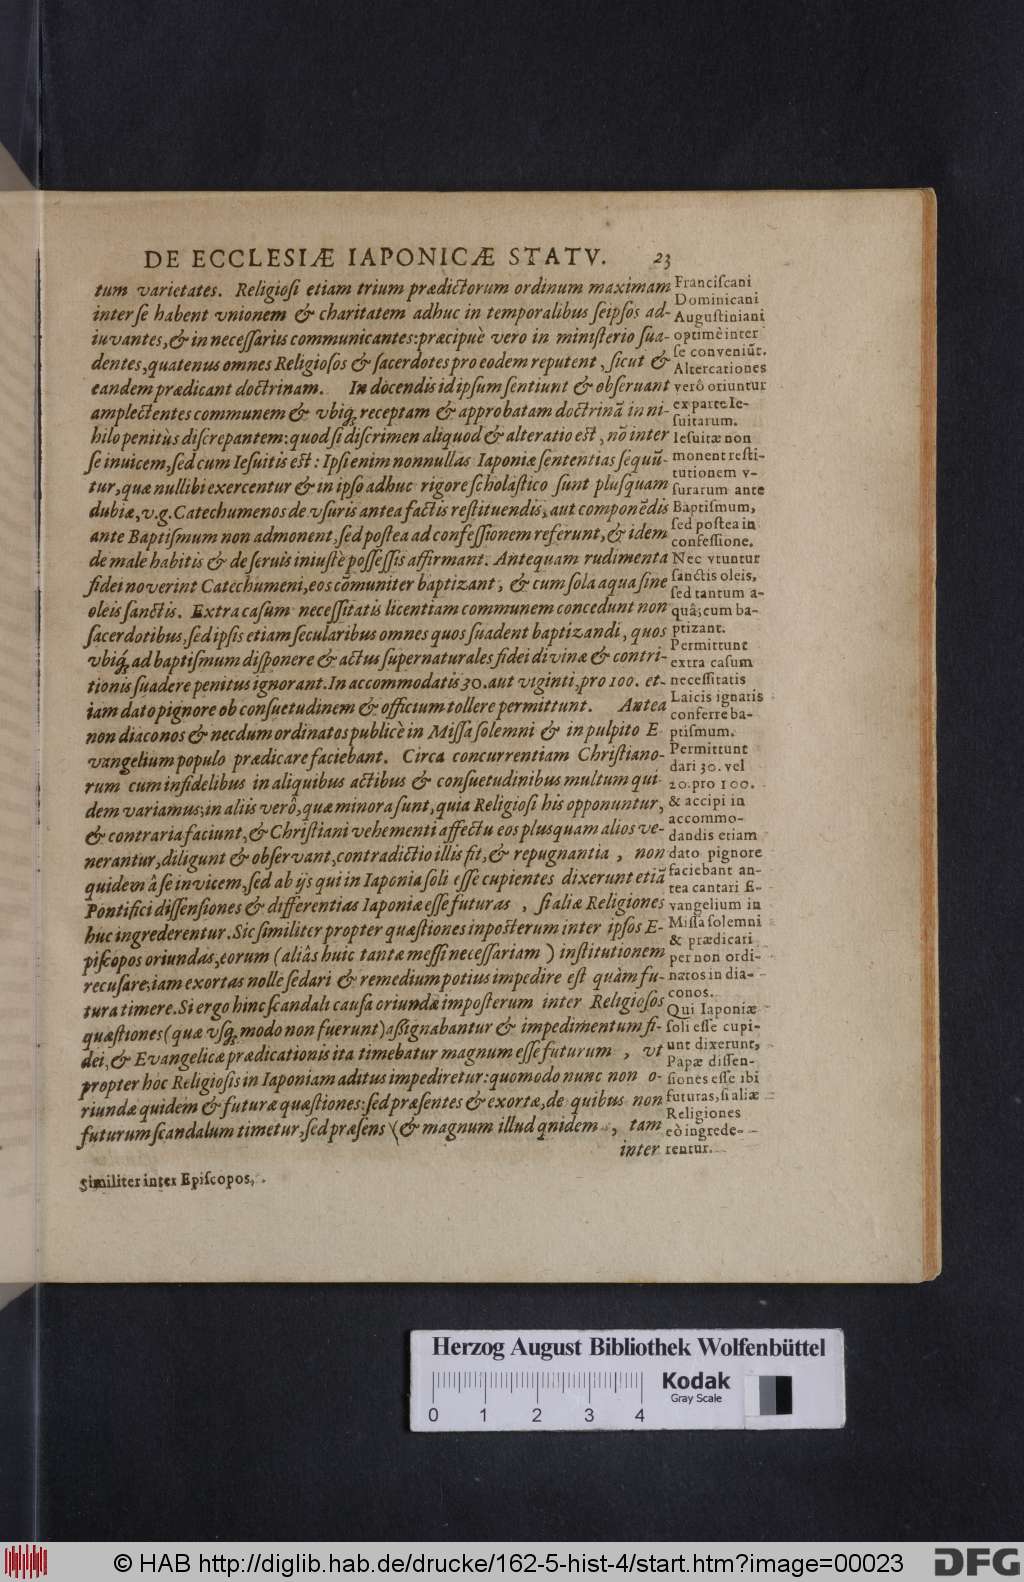 DE ECCLESIÆ IAPONICÆ STATV. 23
tum varietates. Religiosi etiam trium prædictorum ordinum maximam
inter se habent vnionem & charitatem adhuc in temporalibus seipsos ad-
iuvantes, & in necessarius communicantes: præcipuè vero in ministerio sua-
dentes, quatenus omnes Religiosos & sacerdotes pro eodem reputent, sicut &
eandem prædicant doctrinam. In docendis id ipsum sentiunt & obseruant
amplectentes communem & vbiq; receptam & approbatam doctrinã in ni-
hilo penitùs discrepantem: quod si discrimen aliquod & alteratio est, nõ inter
se inuicem, sed cum Iesuitis est: Ipsi enim nonnullas Iaponiæ sententias sequũ-
tur, quæ nullibi exercentur & in ipso adhuc rigore scholastico sunt plusquam
dubiæ, v.g. Catechumenos de vsuris antea factis restituendis, aut componẽdis
ante Baptismum non admonent, sed postea ad confessionem referunt, & idem
de male habitis & de seruis iniustè possessis affirmant. Antequam rudimenta
fidei noverint Catechumeni, eos cõmuniter baptizant, & cum sola aqua sine
oleis sanctis. Extra casum necessitatis licentiam communem concedunt non
sacerdotibus, sed ipsis etiam secularibus omnes quos suadent baptizandi, quos
vbiq; ad baptismum disponere & actus supernaturales fidei divinæ & contri-
tionis suadere penitus ignorant. In accommodatis 30. aut viginti, pro 100. et-
iam dato pignore ob consuetudinem & officium tollere permittunt. Antea
non diaconos & necdum ordinatos publicè in Missa solemni & in pulpito E-
vangelium populo prædicare faciebant. Circa concurrentiam Christiano-
rum cum infidelibus in aliquibus actibus & consuetudinibus multum qui-
dem variamus; in aliis verò, quæ minora sunt, quia Religiosi his opponuntur,
& contraria faciunt, & Christiani vehementi affectu eos plusquam alios ve-
nerantur, diligunt & observant, contradictio illis fit, & repugnantia, non
quidem â se invicem, sed ab ijs qui in Iaponia soli esse cupientes dixerunt etiã
Pontifici dissensiones & differentias Iaponiæ esse futuras, si aliæ Religiones
huc ingrederentur. Sic similiter propter quæstiones inposterum inter ipsos E-
piscopos oriundas, eorum (aliâs huic tantæ messi necessariam) institutionem
recusare; iam exortas nolle sedari & remedium potius impedire est quàm fu-
tura timere. Si ergo hinc scandali causa oriundæ imposterum inter Religiosos
quæstiones (quæ vsq; modo non fuerunt) assignabantur & impedimentum fi-
dei, & Evangelicæ prædicationis ita timebatur magnum esse futurum, vt
propter hoc Religiosis in Iaponiam aditus impediretur: quomodo nunc non o-
riundæ quidem & futuræ quæstiones: sed præsentes & exortæ, de quibus non
futurum scandalum timetur, sed præsens (& magnum illud qnidem, tam
inter
Similiter inter Episcopos,
Franciscani
Dominicani
Augustiniani
optimè inter
se conveniũt.
Altercationes
verô oriuntur
ex parte Ie-
suitarum.
Iesuitæ non
monent resti-
tutionem v-
surarum ante
Baptismum,
sed postea in
confessione.
Nec vtuntur
sanctis oleis,
sed tantum a-
quâ; cum ba-
ptizant.
Permittunt
extra casum
necessitatis
Laicis ignaris
conferre ba-
ptismum.
Permittunt
dari 30. vel
20. pro 100.
& accipi in
accommo-
dandis etiam
dato pignore
faciebant an-
tea cantari E-
vangelium in
Missa solemni
& prædicari
per non ordi-
natos in dia-
conos.
Qui Iaponiæ
soli esse cupi-
unt dixerunt,
Papæ dissen-
siones esse ibi
futuras, si aliæ
Religiones
eò ingrede-
rentur.
Herzog August Bibliothek Wolfenbüttel
Kodak
Gray Scale
0 1 2 3 4
© HAB http://diglib.hab.de/drucke/162-5-hist-4/start.htm?image=00023
DFG